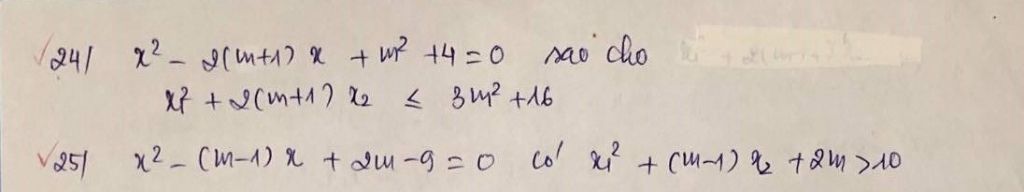 24/ x² - 2(m+1) x + m² + 4 = 0 sao cho
x₁² + 2(m+1) x₂ ≤ 3m² + 16
25/ x² - (m-1) x + 2m - 9 = 0 có x₁² + (m-1) x₂ + 2m > 10